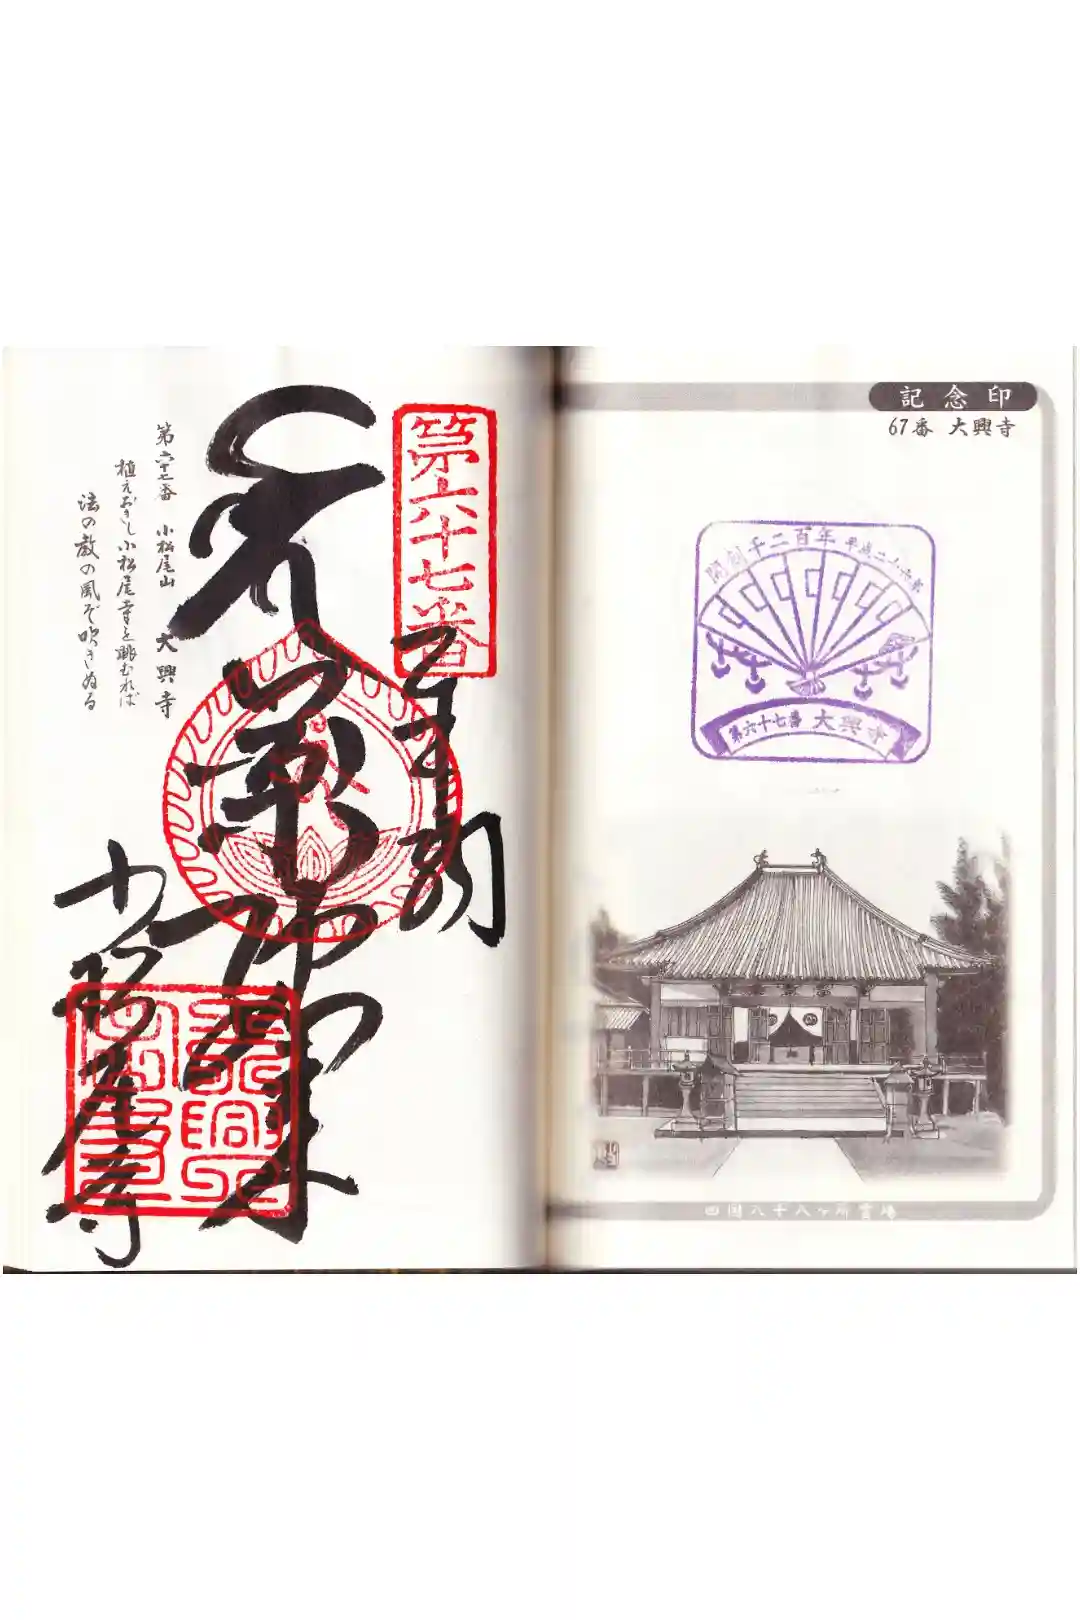 第六十七番
奉納
薬師如来
小松尾寺
大興寺
第六十七番 小松尾山 大興寺
植えおきし小松尾寺を眺むれば
法の教の風ぞ吹きぬる
記念印
67番 大興寺
開創千二百年 平成二十六年
第六十七番 大興寺
四国八十八ヶ所霊場